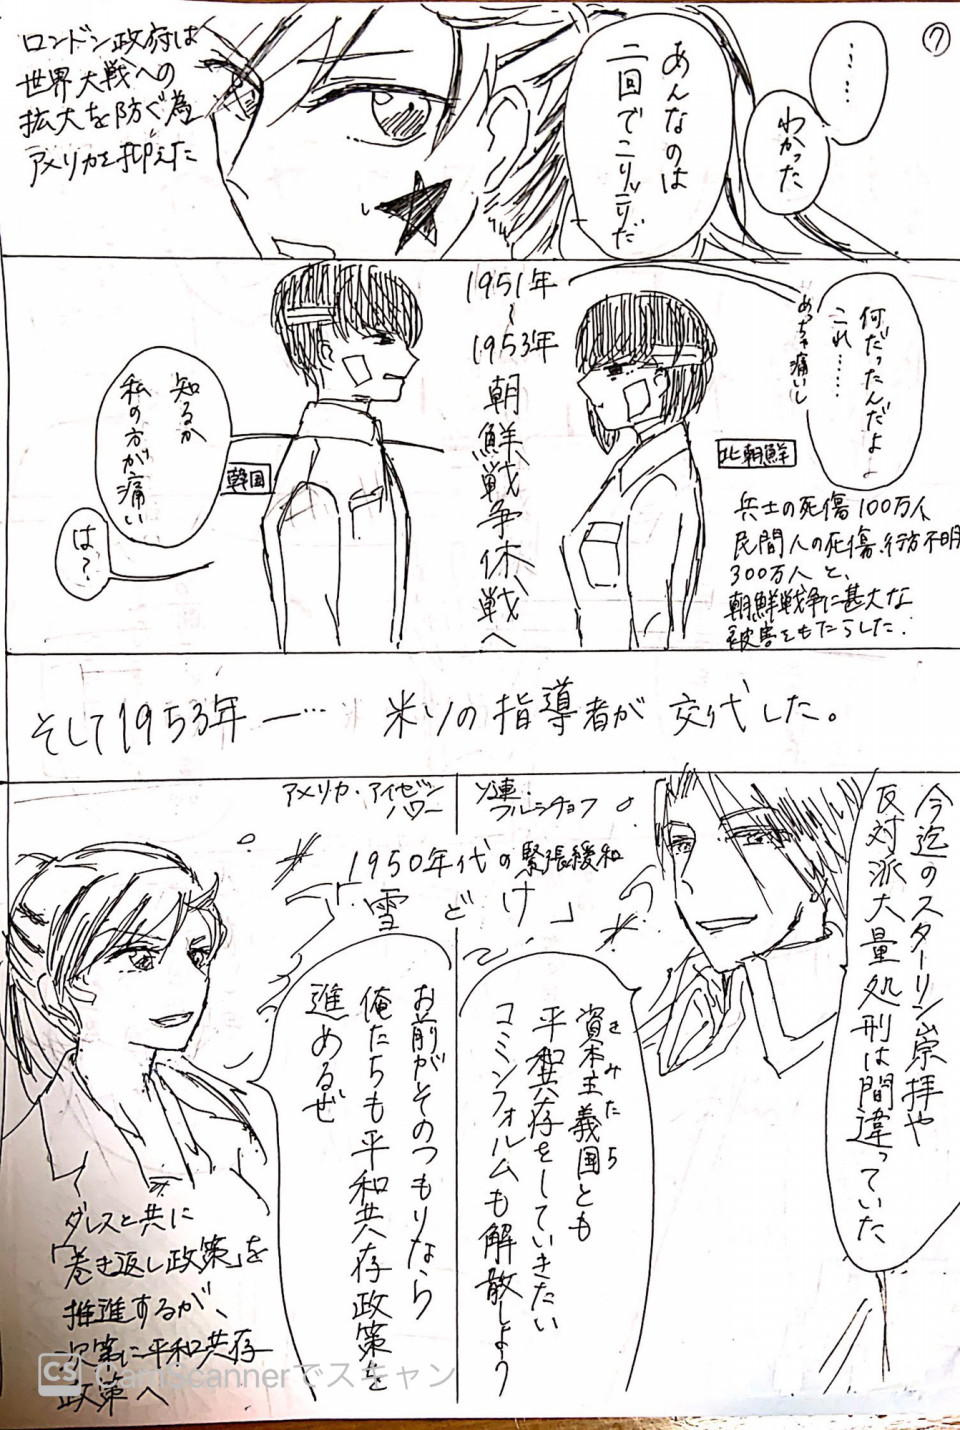 ⑦
……
わかった
あんなのは
二回でこりごりだ
ロンドン政府は
世界大戦への
拡大を防ぐ為
アメリカを抑えた
何だったんだよ
これ……
めっちゃ痛いし
北朝鮮
兵士の死傷100万人
民間人の死傷・行方不明
300万人と、
朝鮮戦争に甚大な
被害をもたらした.
1951年
〜
1953年
朝鮮戦争休戦へ
知るか
私の方が痛い
韓国
は?
そして1953年―… 米ソの指導者が 交代した。
今迄のスターリン崇拝や
反対派大量処刑は間違っていた
ソ連・
フルシチョフ
アメリカ・アイゼン
ハワー
1950年代の緊張緩和
「雪どけ」
資本主義国とも
きみたち
平和共存をしていきたい
コミンフォルムも解散しよう
お前がそのつもりなら
俺たちも平和共存政策を
進めるぜ
ダレスと共に
「巻き返し政策」を
推進するが、
次第に平和共存
政策へ
CS CamScannerでスキャン